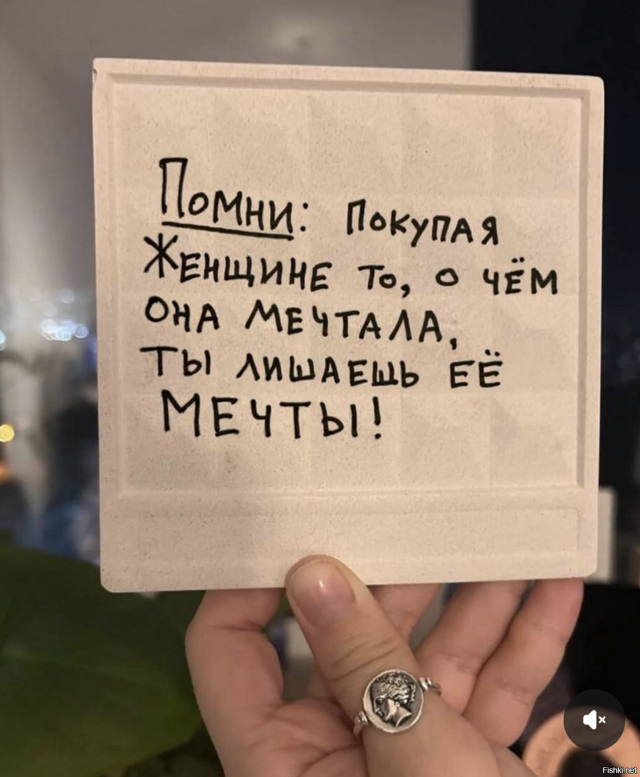 Помни: Покупая
Женщине то, о чём
она мечтала,
ты лишаешь её
мечты!
Fishki.net